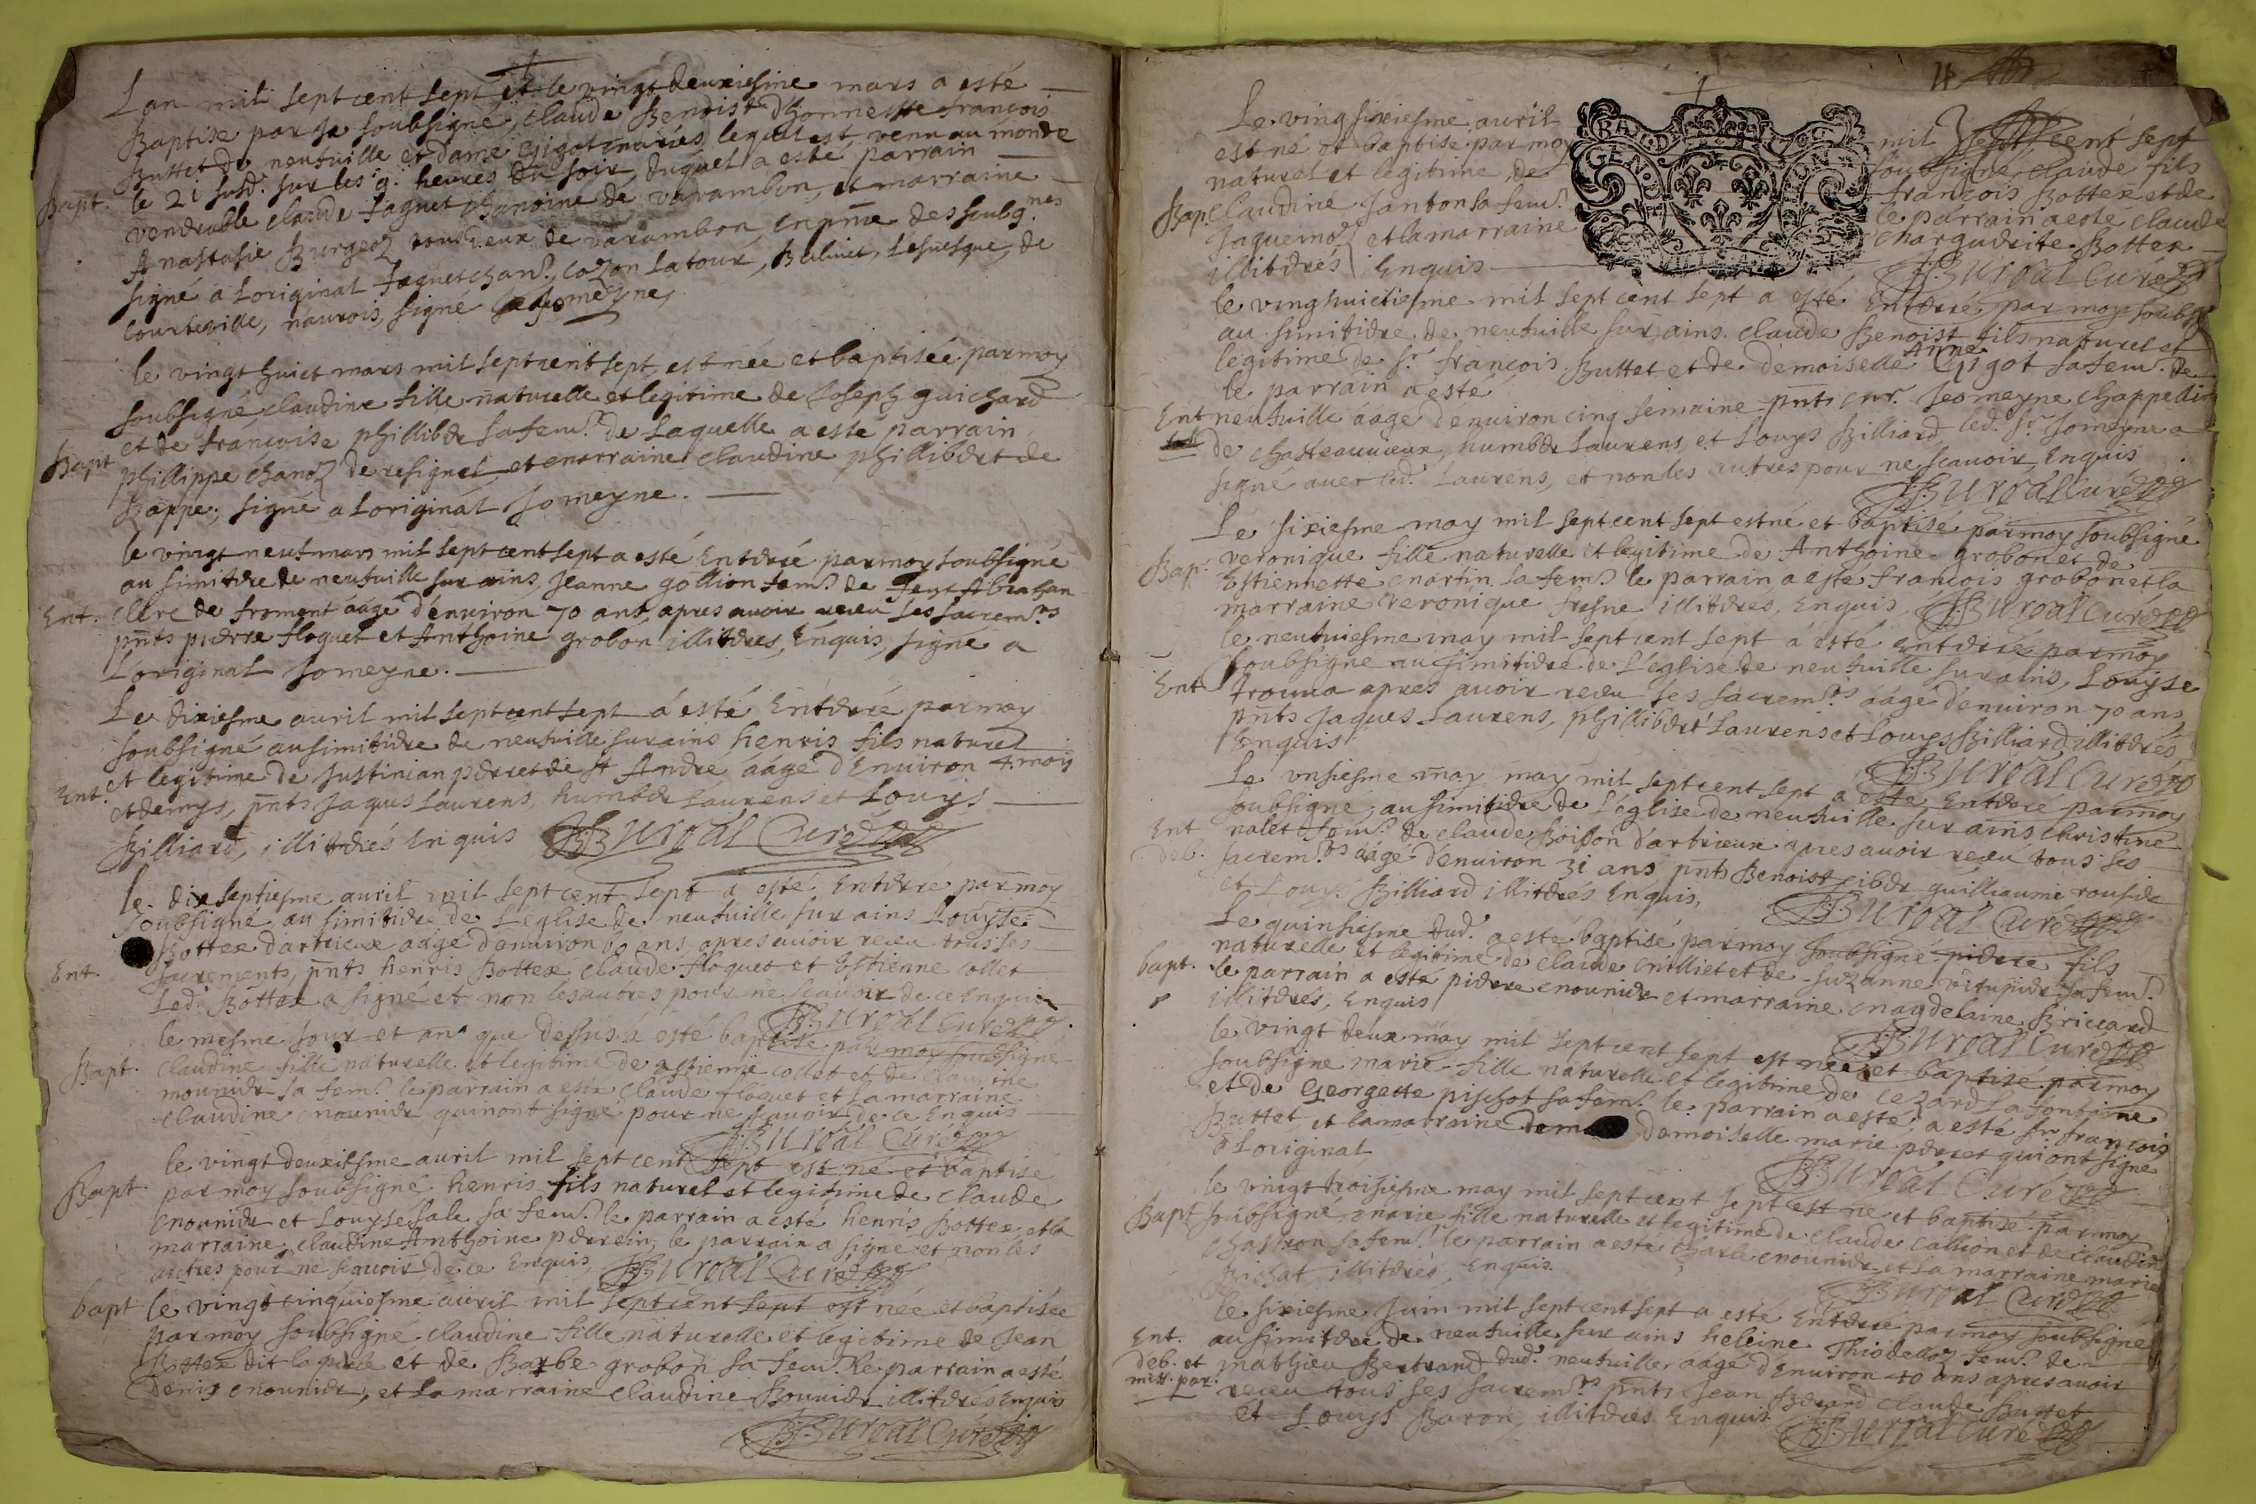 Lan mil sept cent sept et le vingt deuxiesme mars a esté
Baptisé par Je soubsigné, Claude Benoist d'honneste françois
Buttet de neufville et dame Gigot mariés, lequel est venu au monde
Bapt. le 21 susd. sur les 9 heures du soir, duquel a esté parrain
venerable Claude Jaquet chanoine de varambon, et marraine
Anastasie Burgeoz de varambon en pnce des soubg.nes
signé a Loriginal Jaquet chan. Cozon Latour, Bulinet, Lesuesque, de
Courteville, naurois, signé Jomeyne
le vingt huict mars mil sept cent sept, est née et baptisée par moy
soubsigné, claudine fille naturelle et legitime de Joseph guichard
et de françoise phillibde sa fem. de Laquelle a esté parrain
Bapt phillippe chanoz de resignel, et marraine claudine phillibert de
Bappe; signé a Loriginal Jomeyne.
le vingt neuf mars mil sept cent sept a esté Enterré par moy soubsigné
au simitiere de neufville sur ains, Jeanne gollion fem. de feu Abrahan
Ent. clerc de froment aagé d'enuiron 70 ans, apres auoir receu ses sacrem.ts
pnts pierre floquet et Anthoine grobon illitérés, Enquis, signé a
Loriginal Jomeyne.
Le dixiesme auril mil sept cent sept a esté Enterré par moy
soubsigné au simitiere de neufville sur ains henris fils naturel
et legitime de Justinian perret de st Andre aagé d'Enuiron 4 mois
Ent. et demys, pnts Jaques Laurens, humbde Laurens et Louys
Billiard, illitérés Enquis BBuroal Curé
le dix septiesme auril mil sept cent sept a esté Enterré par moy
soubsigné au simitiere de L'eglise de neufville sur ains Louyse
Bottex dartrieux aagé denuiron 60 ans apres auoir receu tous ses
Ent. sacrements, pnts henris Bottex claude floquet et Estienne collet
Led. Bottex a signé et non les autres pour ne scauoir de ce Enquis
BBuroal Curé
le mesme jour et an que dessus a esté baptisé par moy soubsigné
Bapt. Claudine fille naturelle et legitime de estienne collet et de claudine
mounier sa fem. le parrain a esté claude floquet et La marraine
claudine mounier qui n'ont signé pour ne scauoir de ce Enquis
BBuroal Curé
le vingt deuxiesme auril mil sept cent sept est né et baptisé
Bapt. par moy soubsigné henris fils naturel et legitime de claude
mounier et Louyse Sale sa fem. le parrain a esté henris Bottex et la
marraine claudine Anthoine perrein, le parrain a signé et non les
autres pour ne scauoir de ce Enquis, BBuroal Curé
bapt le vingt cinquiesme auril mil sept cent sept est née et baptisée
par moy soubsigné claudine fille naturelle et legitime de Jean
Bottex dit et de Barbe grobon sa fem. le parrain a esté
Denis mounier, et La marraine claudine Bounier illitérés Enquis
BBuroal Curé
4
Le ving sixiesme auril mil sept cent sept
est né et baptisé par moy soubsigné, claude fils
naturel et legitime de françois Bottex et de
Bap. claudine Janton sa fem. le parrain a esté claude
Jaquemoz et la marraine Marguerite Bottex
illitérés Enquis BBuroal Curé
GEN DE
le vinghuictiesme mil sept cent sept a esté Enterré par moy soubsigné
au simitiere de neufville sur ains claude Benoist fils naturel et
legitime de sr. françois Buttet et de demoiselle Anne Gigot sa fem. de
le parrain a esté
Ent neufville aagé d'enuiron cinq semaine pnts mr. Jeomeyne chappelin
de chasteauuieux, humbde Laurens, et Louys Billiard, led. Sr Jomeyne a
signé auec led. Laurens, et non les autres pour ne scauoir Enquis
BBuroal Curé
Le sixiesme may mil sept cent sept est né et baptisé par moy soubsigné
Bap. veronique fille naturelle et legitime de Anthoine grobon et de
Estiennette martin sa fem. le parrain a esté françois grobon et la
marraine veronique fresne illitérés, Enquis, BBuroal Curé
le neufuiesme may mil sept cent sept a esté enterré par moy
soubsigné au simitiere de L'eglise de neufville sur ains, Louyse
Ent trouua apres auoir receu ses sacrem.ts aagé d'enuiron 70 ans
pnts Jaques Laurens, phillibert Laurens et Louys Billiard illitérés
Enquis BBuroal Curé
Le vnsiesme may may mil sept cent sept a esté Enterré par moy
soubsigné, au simitiere de L'eglise de neufville sur ains christine
Ent nalet fem. de claude Boisson dartrieux apres auoir receu tous ses
deb. sacrem.ts aagé d'enuiron 31 ans pnts Benoist guilliaume
et Louys Billiard illitérés Enquis, BBuroal Curé
Le quinsiesme dud. a esté baptisé par moy soubsigné pierre fils
bapt. naturelle et legitime de claude milliet et de Suzanne sa fem.
le parrain a esté pierre mounier et marraine magdelaine Briccard
illitérés, Enquis BBuroal Curé
le vingt deux may mil sept cent sept est née et baptisé par moy
soubsigné marie fille naturelle et legitime de Cezard La fontaine
et de Georgette pischot sa fem. le parrain a esté a esté sr françois
Buttet et la marraine dem demoiselle marie perret qui ont signé
a Loriginal BBuroal Curé
le vingt troisiesme may mil sept cent sept est né et baptisé par moy
Bapt soubsigné marie fille naturelle et legitime de claude Callion et de claudine
chastron sa fem. le parrain a esté charle mounier et La marraine marie
Bichat illitérés, Enquis. BBuroal Curé
le sixiesme Juin mil sept cent sept a esté Enterré par moy soubsigné
Ent. au simitiere de neufville sur ains heleine Thiodelloz fem. de
deb. et mathieu Bertrand dud. neufville, aagé d'Enuiron 40 ans apres auoir
miss. par. receu tous ses sacrem.ts pnts Jean Berard claude Buttet
et Louys Baron, illitérés Enquis BBuroal Curé